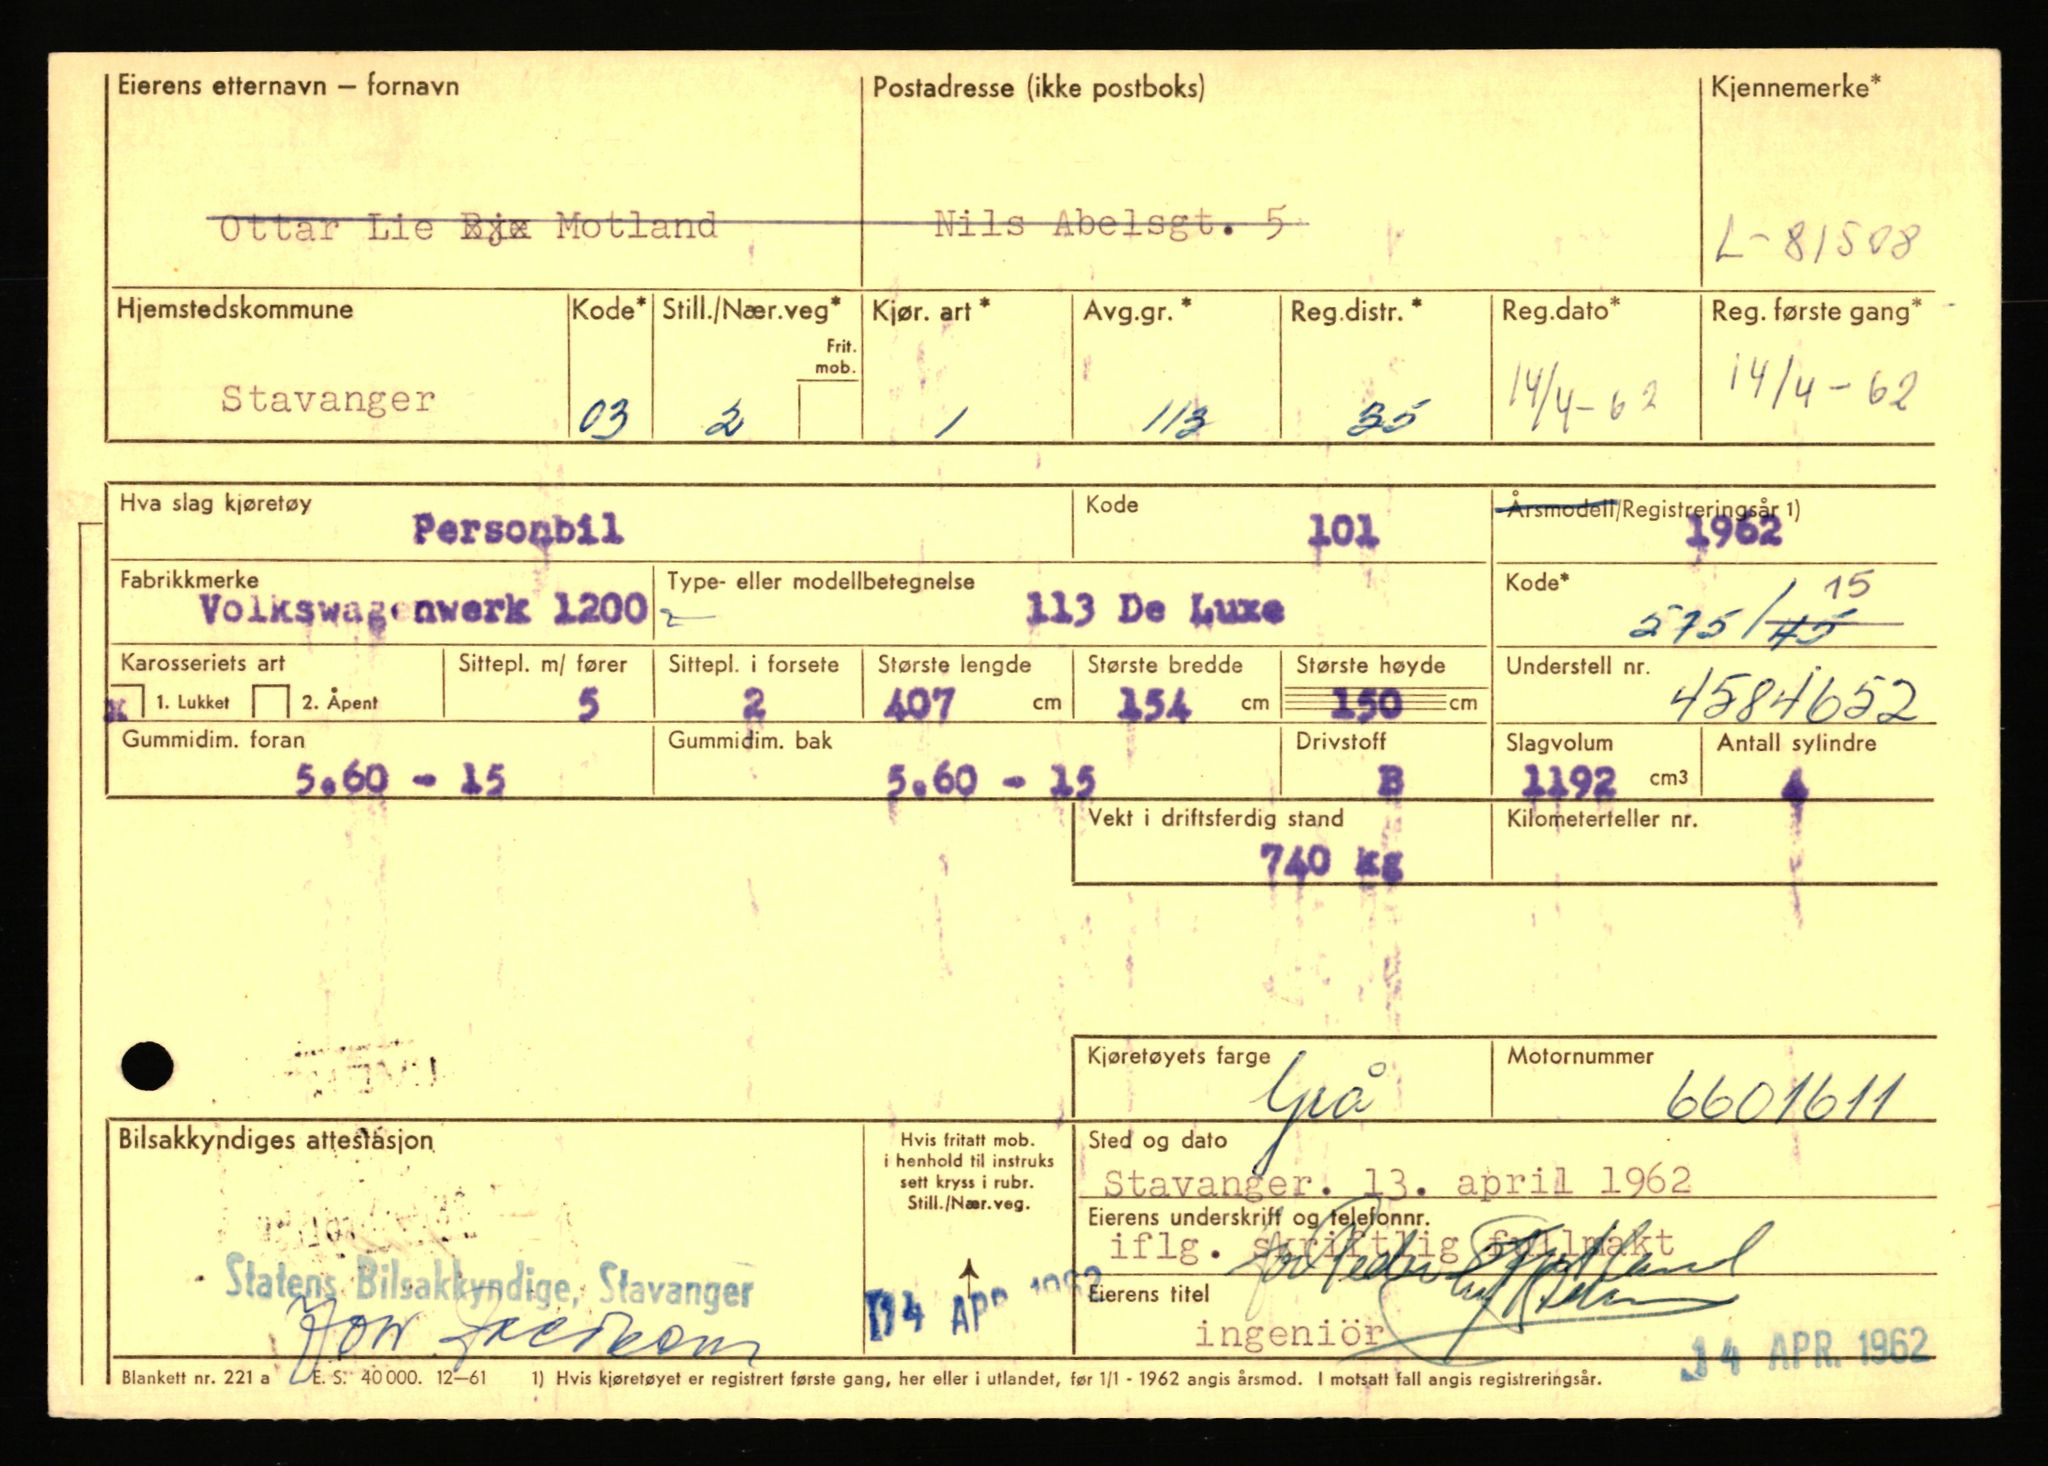 Eierens etternavn — fornavn Postadresse (ikke postboks) Kjennemerke*
Ottar Lie Motland Nils Abelsgt. 5 L-81508
Hjemstedskommune Kode* Still./Nær.veg* Kjør. art* Avg.gr.* Reg.distr.* Reg.dato* Reg. første gang*
Frit.
mob.
Stavanger 03 2 1 113 35 14/4-62 14/4-62
Hva slag kjøretøy Kode Årsmodell/Registreringsår 1)
Personbil 101 1962
Fabrikkmerke Type- eller modellbetegnelse Kode*
Volkswagenwerk 1200 113 De Luxe 575/45 15
Karosseriets art Sittepl. m/ fører Sittepl. i forsete Største lengde Største bredde Største høyde Understell nr.
x 1. Lukket 2. Åpent 5 2 407 cm 154 cm 150 cm 4584652
Gummidim. foran Gummidim. bak Drivstoff Slagvolum Antall sylindre
5.60 - 15 5.60 - 15 B 1192 cm3 4
Vekt i driftsferdig stand Kilometerteller nr.
740 kg
Kjøretøyets farge Motornummer
Grå 6601611
Bilsakkyndiges attestasjon Hvis fritatt mob. Sted og dato
i henhold til instruks
sett kryss i rubr.
Still./Nær.veg.
Stavanger. 13. april 1962
Eierens underskrift og telefonnr.
iflg. skriftlig fullmakt
Statens Bilsakkyndige, Stavanger
14 APR 1962
Eierens titel
ingeniör
14 APR. 1962
Blankett nr. 221 a E. S. 40 000. 12—61 1) Hvis kjøretøyet er registrert første gang, her eller i utlandet, før 1/1 - 1962 angis årsmod. I motsatt fall angis registreringsår.